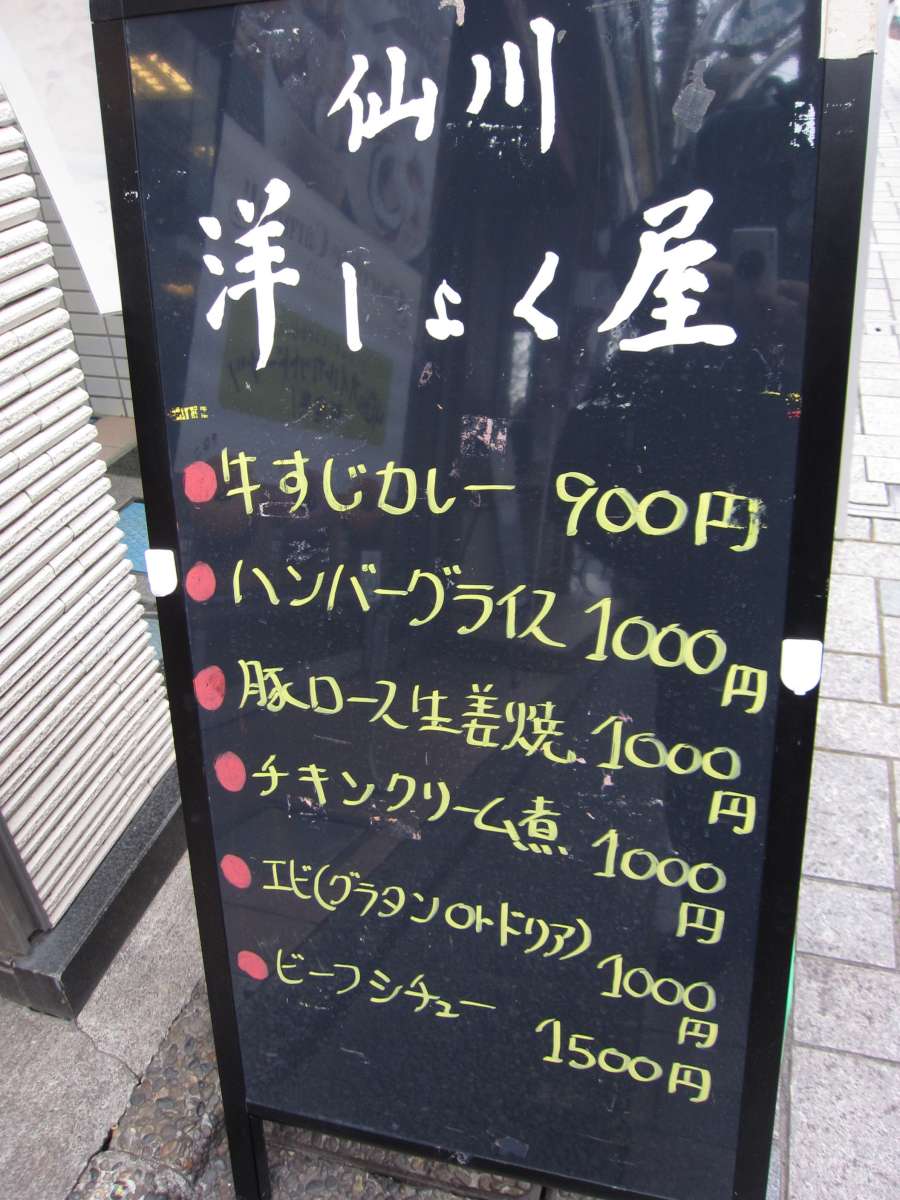 仙川
洋しょく屋
牛すじカレー 900円
ハンバーグライス 1000円
豚ロース生姜焼 1000円
チキンクリーム煮 1000円
エビ(グラタン or ドリア) 1000円
ビーフシチュー 1500円